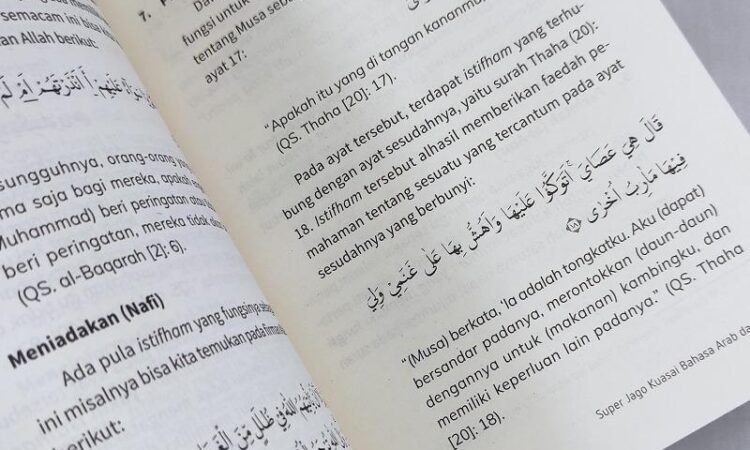 semacam ini bisa
an Allah berikut:
ءَاَنْذَرْتَهُمْ اَمْ لَمْ
sungguhnya, orang-orang
ma saja bagi mereka, apakah
Muhammad) beri peringatan atau
beri peringatan, mereka tidak
(QS. al-Baqarah [2]: 6).
Meniadakan (Nafi)
Ada pula istifham yang fungsinya
ini misalnya bisa kita temukan pada
berikut:
فِيْ ظُلَلٍ مِّنَ
7.
fungsi untuk
tentang Musa
ayat 17:
"Apakah itu yang di tangan kananmu
(QS. Thaha [20]: 17).
Pada ayat tersebut, terdapat istifham yang terhu-
bung dengan ayat sesudahnya, yaitu surah Thaha [20]:
18. Istifham tersebut alhasil memberikan faedah pe-
mahaman tentang sesuatu yang tercantum pada ayat
sesudahnya yang berbunyi:
قَالَ هِيَ عَصَايَۚ اَتَوَكَّؤُا عَلَيْهَا وَاَهُشُّ بِهَا عَلٰى غَنَمِيْ وَلِيَ
فِيْهَا مَاٰرِبُ اُخْرٰى ۝١٨
"(Musa) berkata, 'Ia adalah tongkatku. Aku (dapat)
bersandar padanya, merontokkan (daun-daun)
dengannya untuk (makanan) kambingku, dan
memiliki keperluan lain padanya." (QS. Thaha
[20]: 18).
Super Jago Kuasai Bahasa Arab